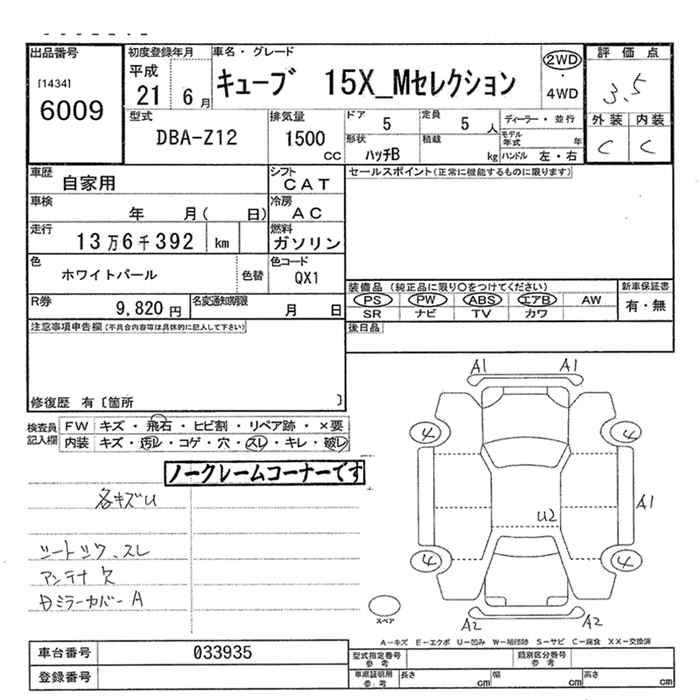 出品番号
[1434]
6009
初度登録年月
平成
21 6月
車名・グレード
キューブ 15X_Mセレクション
2WD
・
4WD
評価点
3.5
外装 内装
C C
型式
DBA-Z12
排気量
1500
CC
ドア
5
定員
5 人
ディーラー・並行
モデル
年式 年
形状
ハッチB
積載
kg
ハンドル 左・右
車歴
自家用
シフト
CAT
セールスポイント(正常に機能するものに限ります)
車検
年 月( 日)
冷房
AC
走行
13万6千392 km
燃料
ガソリン
色
ホワイトパール
色替
色コード
QX1
装備品 (純正品に限り○をつけてください)
PS PW ABS エアB AW
SR ナビ TV カワ
新車保証書
有・無
R券
9,820 円
名変通知期限
月 日
後日品
注意事項申告欄(不具合内容等は具体的に記入して下さい)
修復歴 有〔箇所 〕
検査員
記入欄
FW キズ・飛石・ヒビ割・リペア跡・×要
内装 キズ・汚レ・コゲ・穴・スレ・キレ・破レ
ノークレームコーナーです
各キズU
シートシワ、スレ
アンテナ欠
Bミラーカバー A
A1 A1
4 4
A1
U2
4 4
A2 A2
スペア
A-キズ E-エクボ U-凹み W-補修跡 S-サビ C-腐食 XX-交換済
車台番号
033935
登録番号
型式指定番号
参考
類別区分番号
参考
車庫証明用
参考
長さ cm
幅 cm
高さ cm